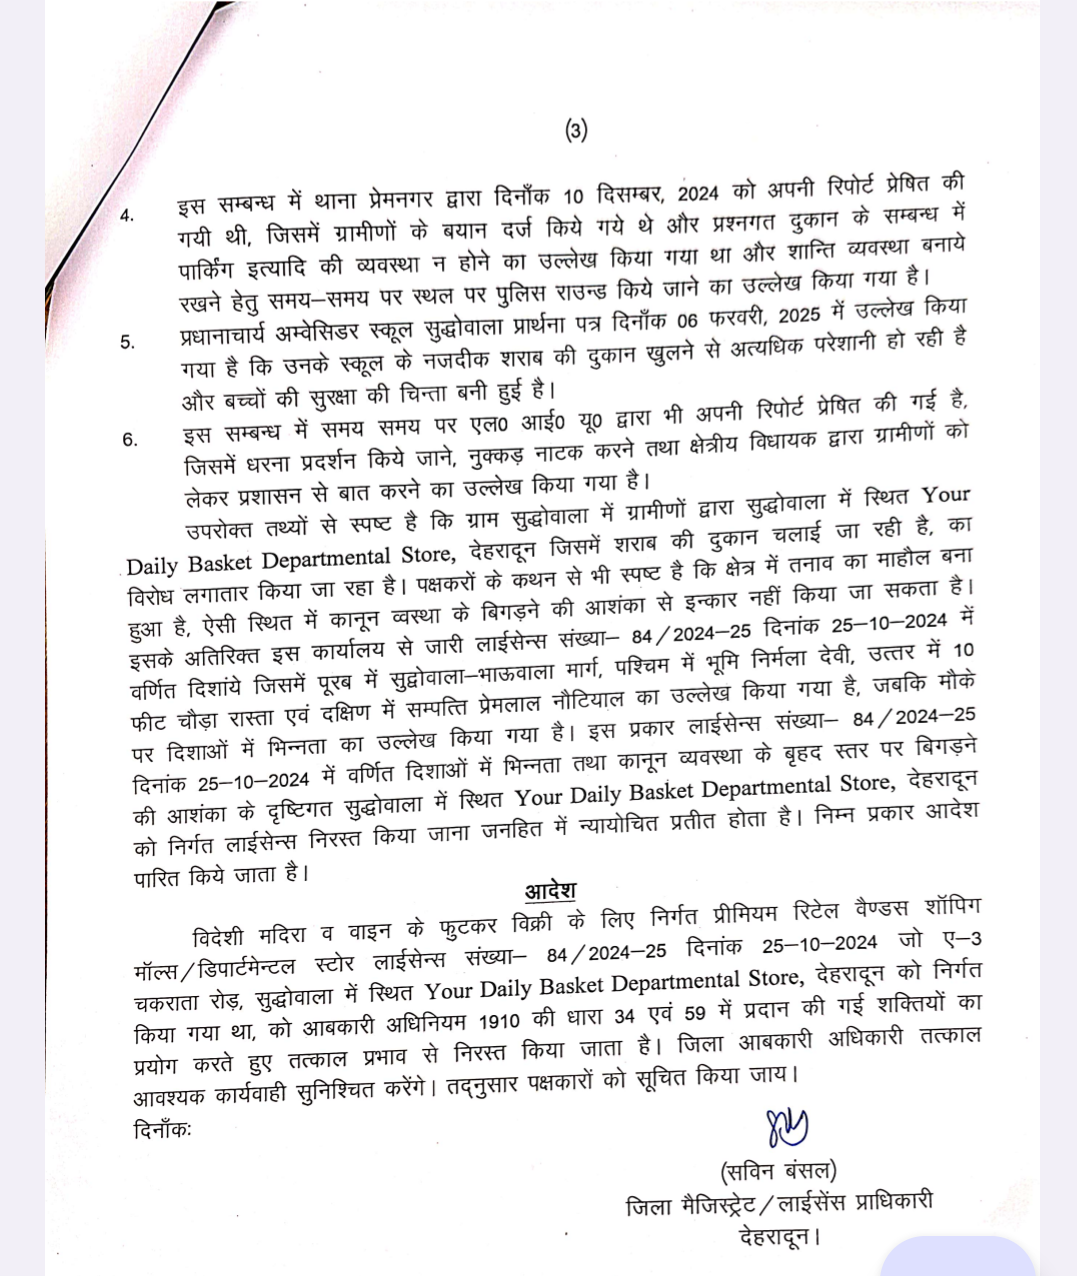 (3)
4. इस सम्बन्ध में थाना प्रेमनगर द्वारा दिनाँक 10 दिसम्बर, 2024 को अपनी रिपोर्ट प्रेषित की
गयी थी, जिसमें ग्रामीणों के बयान दर्ज किये गये थे और प्रश्नगत दुकान के सम्बन्ध में
पार्किंग इत्यादि की व्यवस्था न होने का उल्लेख किया गया था और शान्ति व्यवस्था बनाये
रखने हेतु समय–समय पर स्थल पर पुलिस राउन्ड किये जाने का उल्लेख किया गया है।
5. प्रधानाचार्य अम्वेसिडर स्कूल सुद्धोवाला प्रार्थना पत्र दिनाँक 06 फरवरी, 2025 में उल्लेख किया
गया है कि उनके स्कूल के नजदीक शराब की दुकान खुलने से अत्यधिक परेशानी हो रही है
और बच्चों की सुरक्षा की चिन्ता बनी हुई है।
6. इस सम्बन्ध में समय समय पर एल0 आई0 यू0 द्वारा भी अपनी रिपोर्ट प्रेषित की गई है,
जिसमें धरना प्रदर्शन किये जाने, नुक्कड़ नाटक करने तथा क्षेत्रीय विधायक द्वारा ग्रामीणों को
लेकर प्रशासन से बात करने का उल्लेख किया गया है।
उपरोक्त तथ्यों से स्पष्ट है कि ग्राम सुद्धोवाला में ग्रामीणों द्वारा सुद्धोवाला में स्थित Your
Daily Basket Departmental Store, देहरादून जिसमें शराब की दुकान चलाई जा रही है, का
विरोध लगातार किया जा रहा है। पक्षकरों के कथन से भी स्पष्ट है कि क्षेत्र में तनाव का माहौल बना
हुआ है, ऐसी स्थित में कानून व्वस्था के बिगड़ने की आशंका से इन्कार नहीं किया जा सकता है।
इसके अतिरिक्त इस कार्यालय से जारी लाईसेन्स संख्या– 84/2024–25 दिनांक 25–10–2024 में
वर्णित दिशांये जिसमें पूरब में सुद्वोवाला–भाऊवाला मार्ग, पश्चिम में भूमि निर्मला देवी, उत्तर में 10
फीट चौड़ा रास्ता एवं दक्षिण में सम्पत्ति प्रेमलाल नौटियाल का उल्लेख किया गया है, जबकि मौके
पर दिशाओं में भिन्नता का उल्लेख किया गया है। इस प्रकार लाईसेन्स संख्या– 84/2024–25
दिनांक 25–10–2024 में वर्णित दिशाओं में भिन्नता तथा कानून व्यवस्था के बृहद स्तर पर बिगड़ने
की आशंका के दृष्टिगत सुद्धोवाला में स्थित Your Daily Basket Departmental Store, देहरादून
को निर्गत लाईसेन्स निरस्त किया जाना जनहित में न्यायोचित प्रतीत होता है। निम्न प्रकार आदेश
पारित किये जाता है।
आदेश
विदेशी मदिरा व वाइन के फुटकर विक्री के लिए निर्गत प्रीमियम रिटेल वैण्डस शॉपिग
मॉल्स/डिपार्टमेन्टल स्टोर लाईसेन्स संख्या– 84/2024–25 दिनांक 25–10–2024 जो ए–3
चकराता रोड़, सुद्धोवाला में स्थित Your Daily Basket Departmental Store, देहरादून को निर्गत
किया गया था, को आबकारी अधिनियम 1910 की धारा 34 एवं 59 में प्रदान की गई शक्तियों का
प्रयोग करते हुए तत्काल प्रभाव से निरस्त किया जाता है। जिला आबकारी अधिकारी तत्काल
आवश्यक कार्यवाही सुनिश्चित करेंगे। तद्नुसार पक्षकारों को सूचित किया जाय।
दिनाँकः
(सविन बंसल)
जिला मैजिस्ट्रेट/लाईसेंस प्राधिकारी
देहरादून।